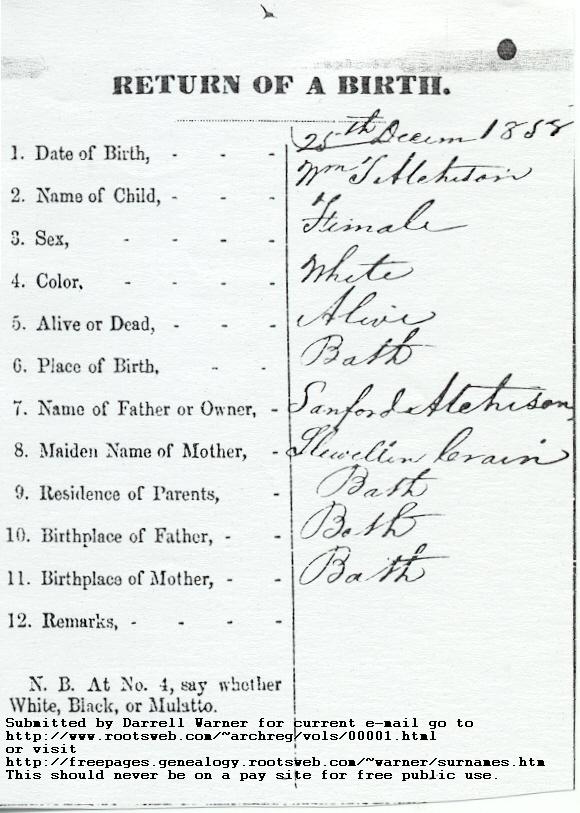 RETURN OF A BIRTH.
1. Date of Birth, - - - 25th Decem 1858
2. Name of Child, - - - Wm S Atchison
3. Sex, - - - - Female
4. Color, - - - - White
5. Alive or Dead, - - - Alive
6. Place of Birth, - - Bath
7. Name of Father or Owner, - Sanford Atchison
8. Maiden Name of Mother, - Llewellin Crain
9. Residence of Parents, - Bath
10. Birthplace of Father, - - Bath
11. Birthplace of Mother, - - Bath
12. Remarks, - - - -
N. B. At No. 4, say whether
White, Black, or Mulatto.
Submitted by Darrell Warner for current e-mail go to
http://www.rootsweb.com/~archreg/vols/00001.html
or visit
http://freepages.genealogy.rootsweb.com/~warner/surnames.htm
This should never be on a pay site for free public use.